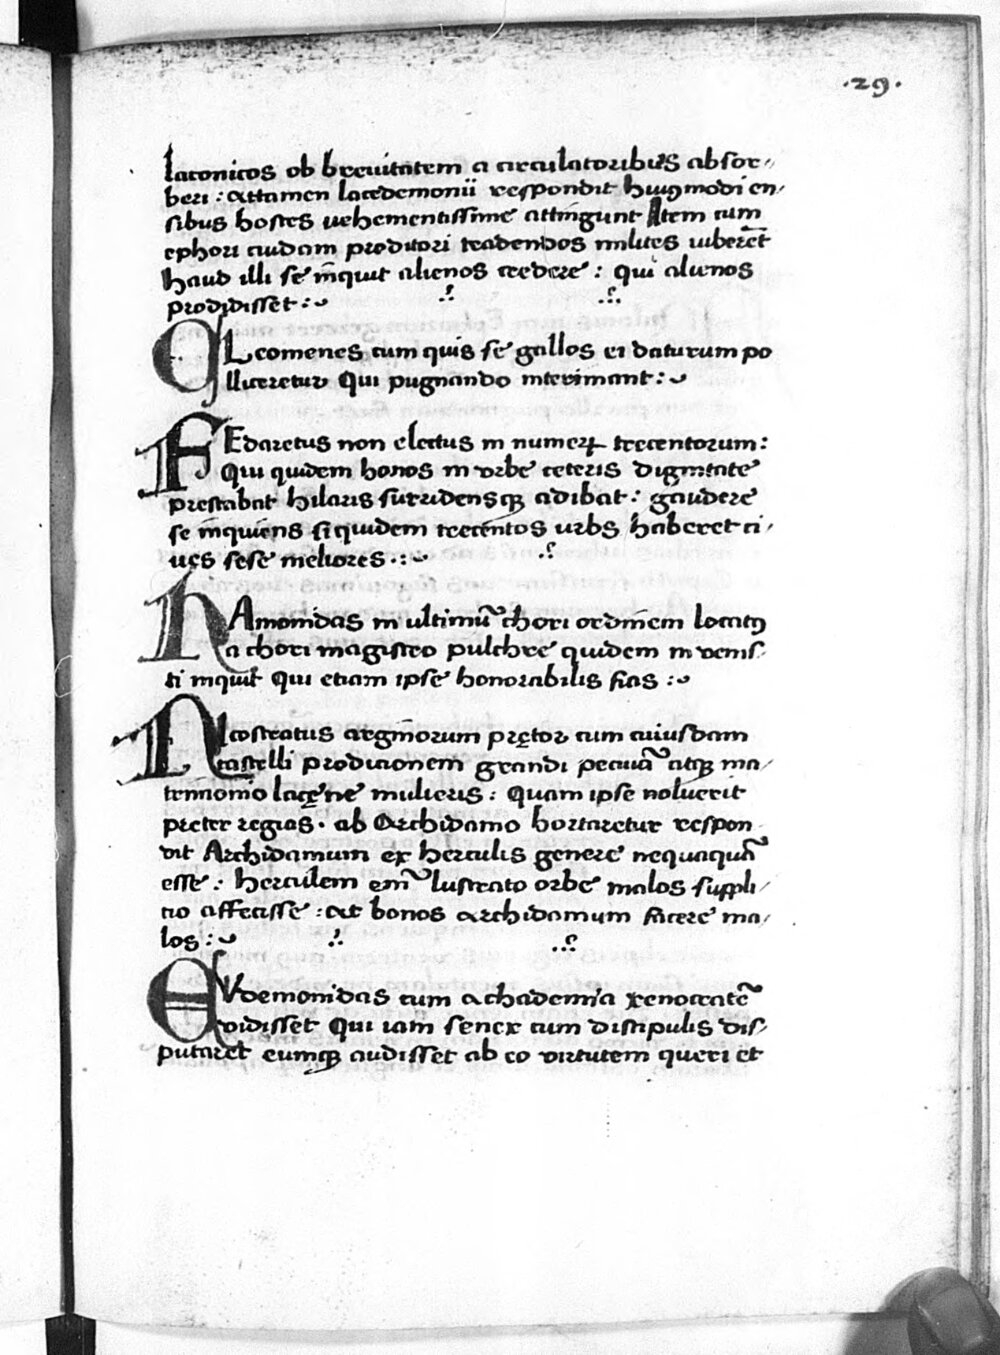 ·29·
laconicos ob breuitatem a circulatoribus absor-
beri : attamen lacedemonii respondit huiꝰmodi en-
sibus hostes uehementissime attingunt Item cum
ephori cuidam proditori tradendos milites iuberēt
haud illi se īnquit alienos credere : qui alienos
prodidisset :
CLcomenes cum quis se gallos ei daturum po
lliceretur Qui pugnando interimant :
FEdaretus non electus in numeꝝ trecentorum :
Qui quidem honos in vrbe ceteris dignitate
prestabat hilaris surridensqꝫ adibat : gaudere
se īnquiens siquidem trecentos urbs haberet ci-
ues sese meliores .:
DAmonidas in ultimū chori ordinem locatꝰ
a chori magistro pulchre quidem inuenis-
ti inquit Qui etiam ipse honorabilis fias :
ALcostratus argīnorum prętor cum cuiusdam
castelli prodicionem grandi pecuīa atqꝫ ma-
trimonio lacęne mulieris : Quam ipse noluerit
preter regias . ab Archidamo hortaretur respon-
dit Archidamum ex herculis genere nequaquā
esse : herculem enī lustrato orbe malos suppli-
cio affecisse : at bonos archidamum facere ma-
los :
EVdemonidas cum achademia xenocratē
vidisset Qui iam senex cum discipulis dis-
putaret eumqꝫ audisset ab eo virtutem queri et